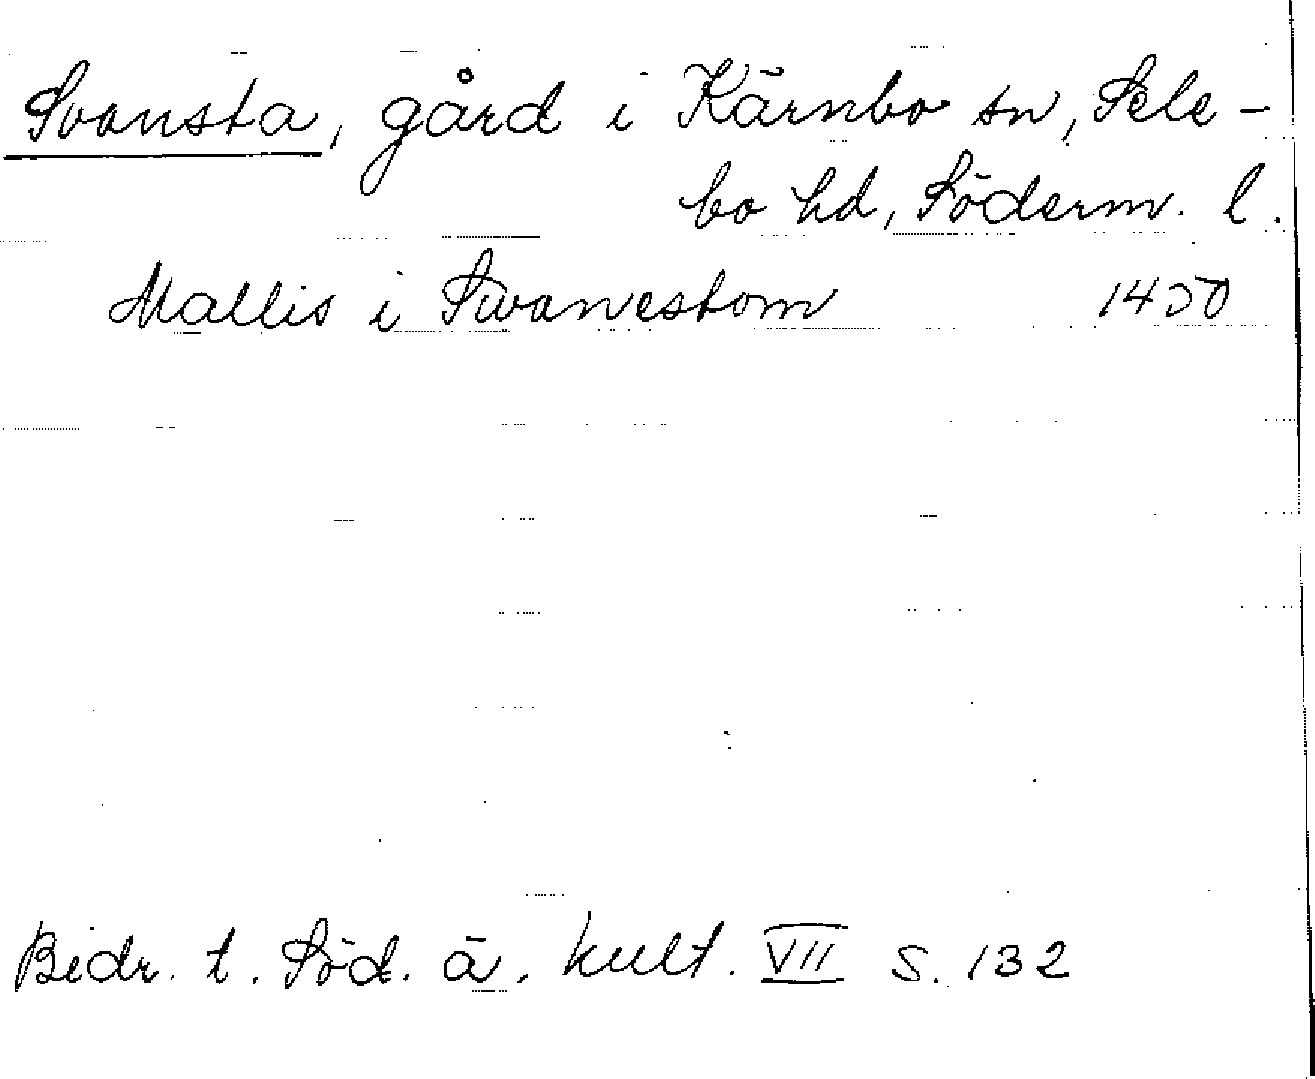 Svansta, gård i Kärnbo sn, Sele-
bo hd, Söderm. l.
Mallis i Swanestom 1450
Bidr. t. Söd. ä. kult. VII s. 132